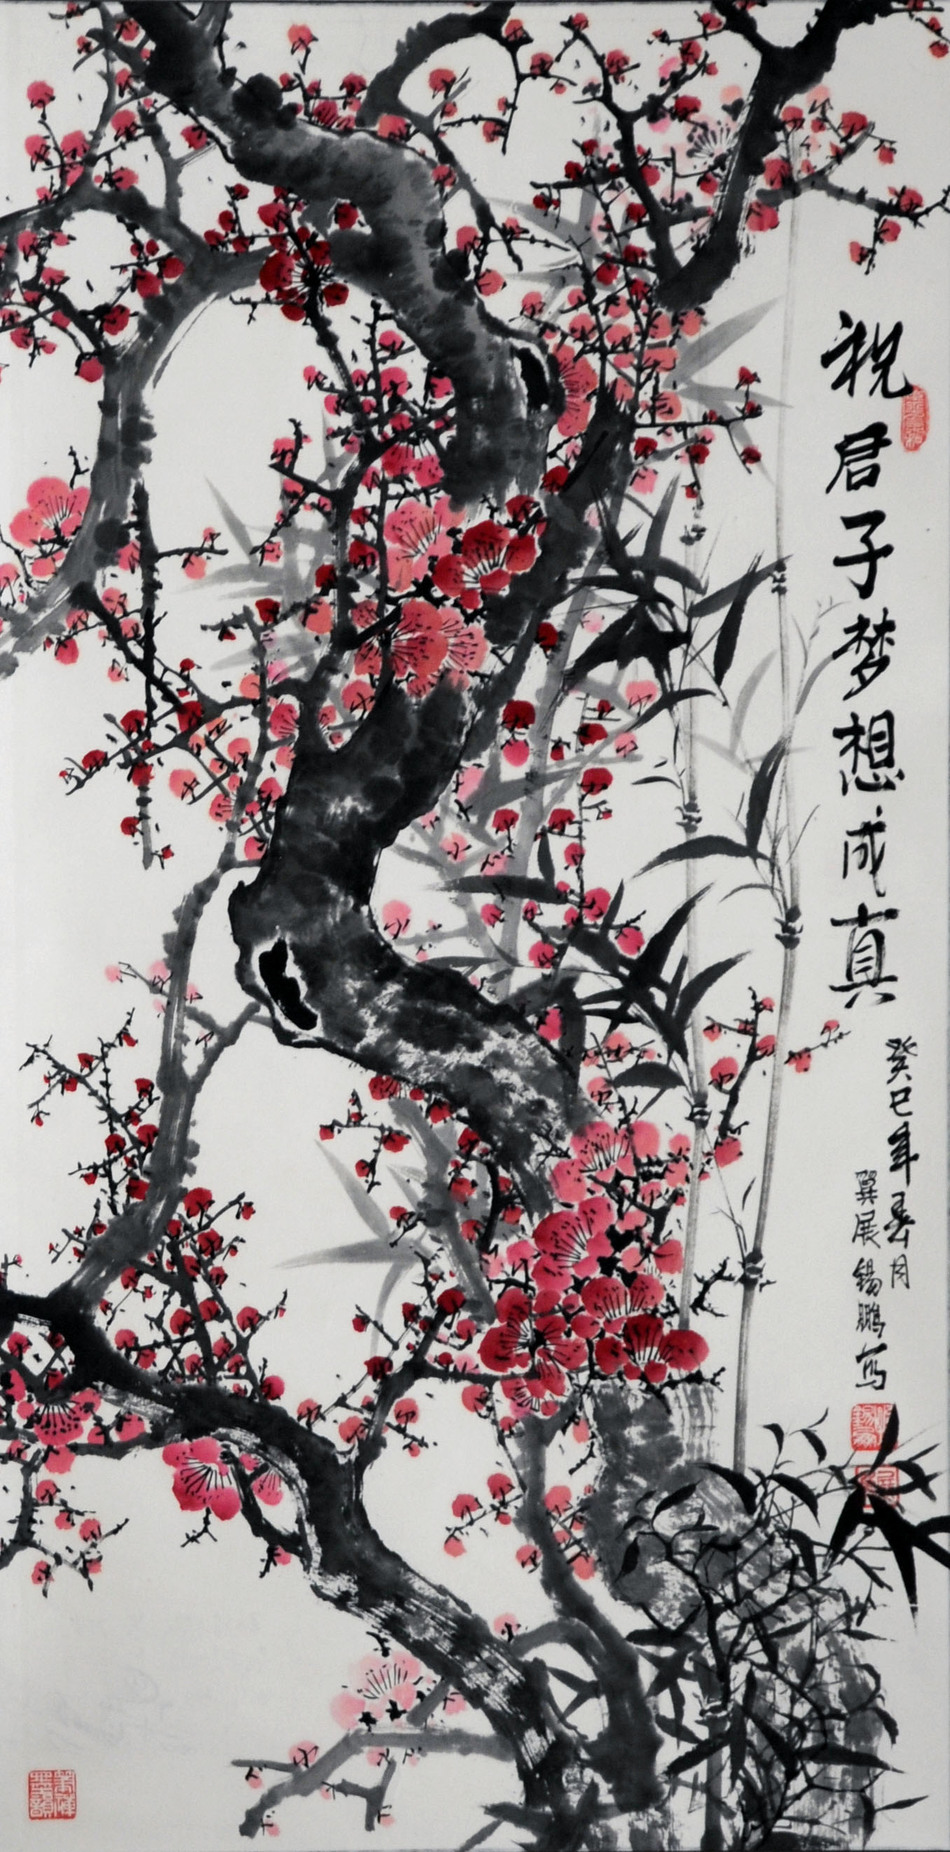 祝君子梦想成真
癸巳年春月
翼展锡鹏写